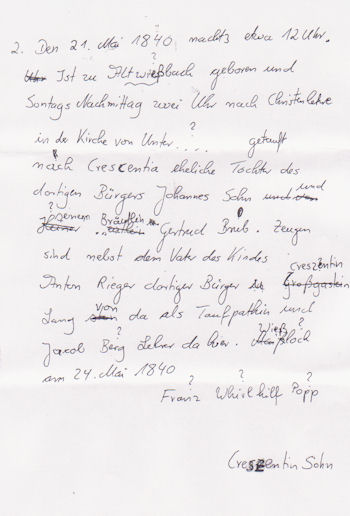 2. Den 21. Mai 1840 nachts etwa 12 Uhr.
Ist zu Altwießbach geboren und
Sontags Nachmittag zwei Uhr nach Christenlehre
?
in der Kirche von Unter.... getauft
nach Crescentia eheliche Tochter des
dortigen Bürgers Johannes Sohn und
? gemein Bräuthin Gertrud Braub. Zeugen
sind nebst dem Vater des Kindes
Creszentin
Anton Rieger dortiger Bürger Großgastein
Lang von da als Taufpathin und
? Wieß ?
Jacob Berg Lehrer da hier. loch
am 24. Mai 1840
? ? ?
Franz Whirlhilf Popp
Creszentin Sohn